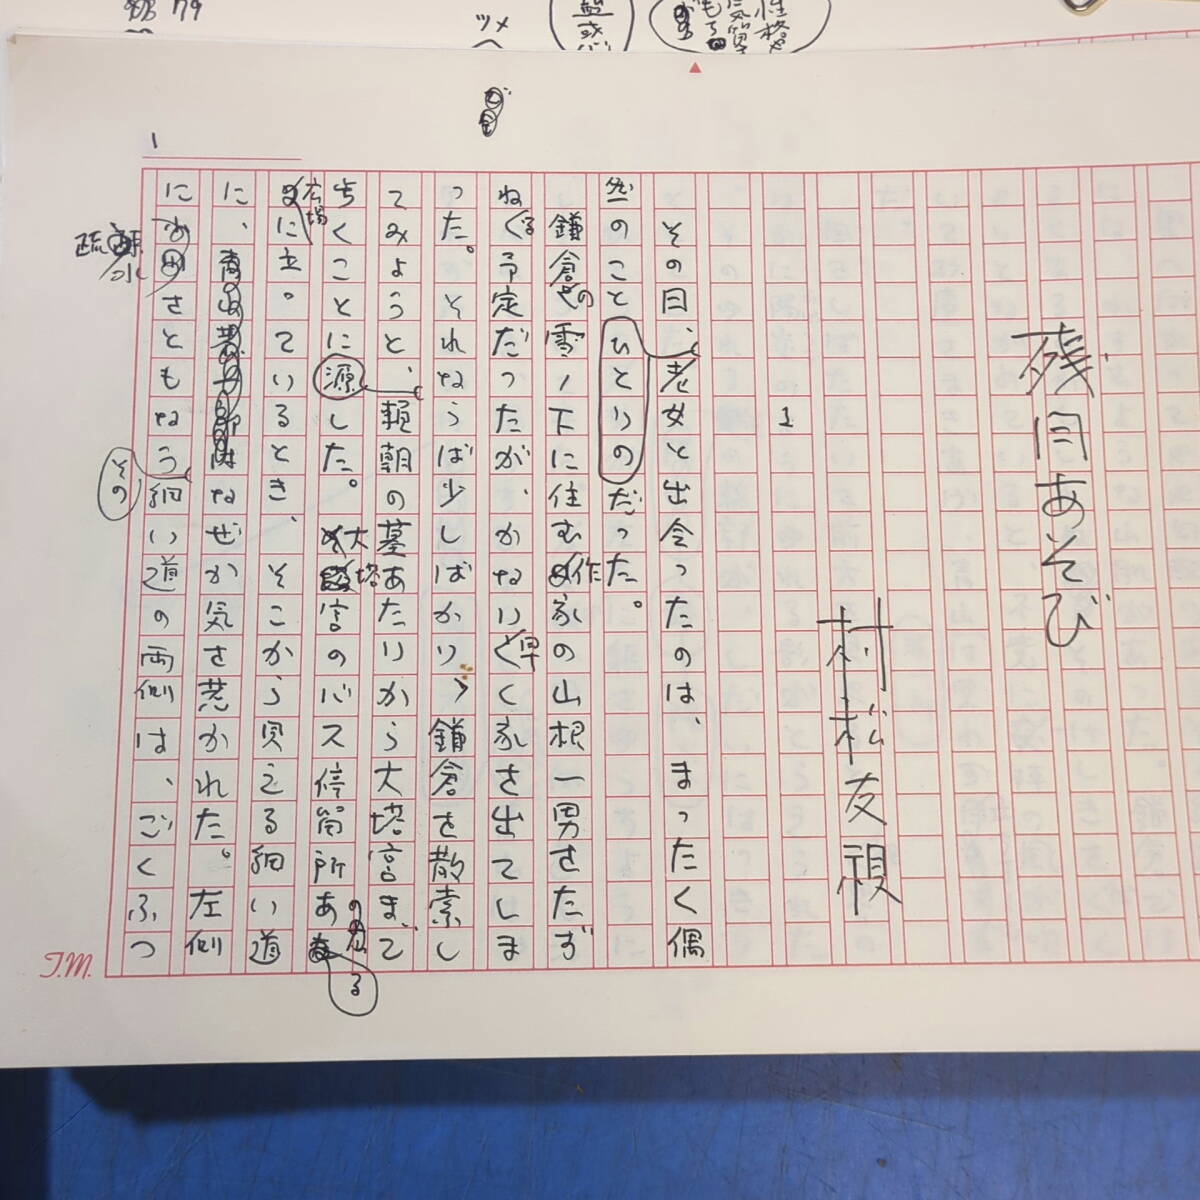 残月あそび
村松友視
1
その日、老女と出会ったのは、まったく偶
然のことだった。
鎌倉の雪ノ下に住む作家の山根一男をたず
ねる予定だったが、かなり早く家を出てしま
った。それならば少しばかり鎌倉を散索し
てみようと、頼朝の墓あたりから大塔宮まで
歩くことにした。大塔宮のバス停留所のある
広場に立っているとき、そこから見える細い道
に、なぜか気を惹かれた。左側
に疏水をともなうその細い道の両側は、ごくふつ
1
T.M.
ツメ
79